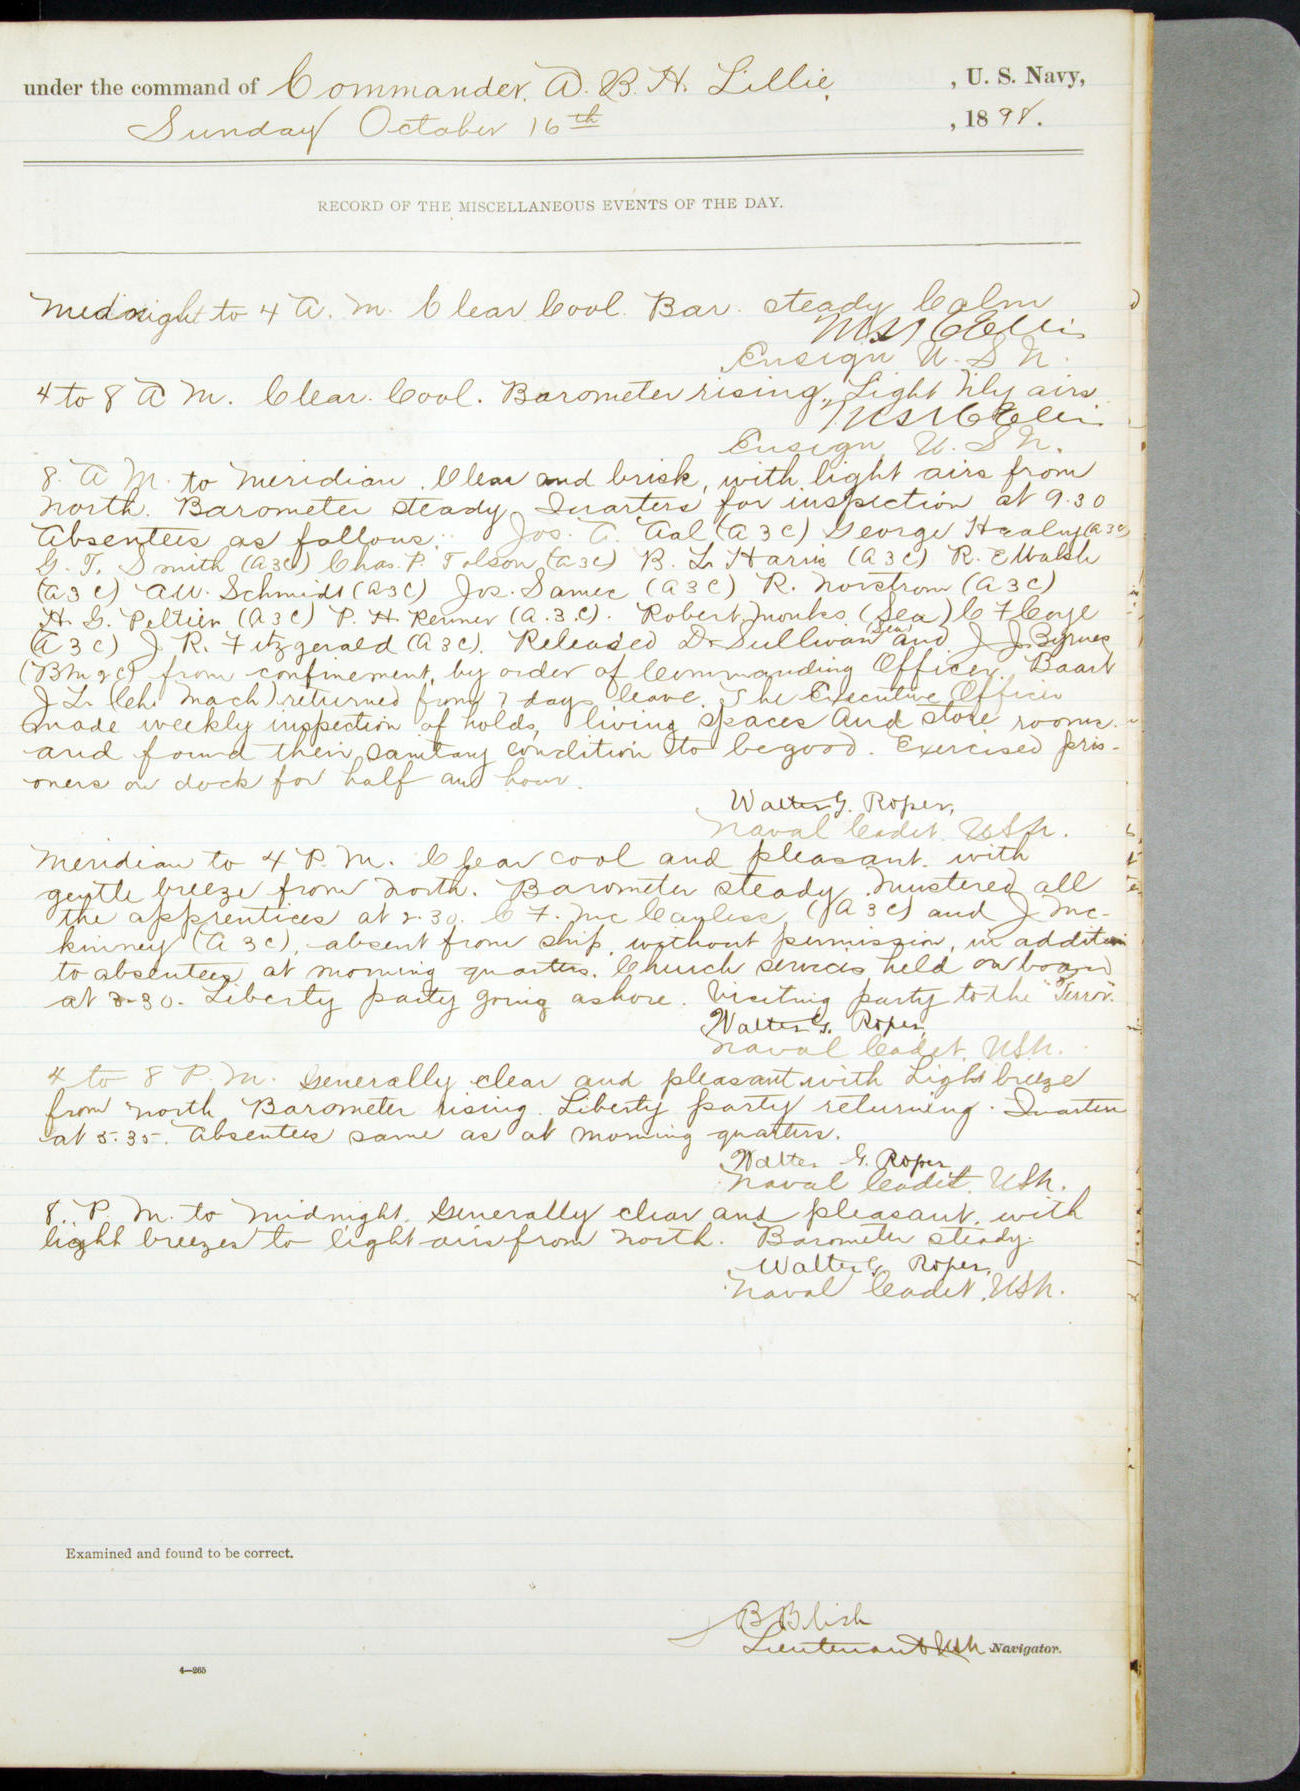 under the command of Commander, A. B. H. Lillie, , U. S. Navy,
Sunday October 16th , 1898.
RECORD OF THE MISCELLANEOUS EVENTS OF THE DAY.
Midnight to 4 A. M. Clear Cool. Bar. steady Calm
Ensign U. S. N.
4 to 8 A M. Clear. Cool. Barometer rising, Light N'ly airs
Ensign, U. S. N.
8. A M. to Meridian. Clear and brisk, with light airs from
North. Barometer steady. Quarters for inspection at 9.30
Absentees as follows: Jos. A. Aal (A 3 C) George Healy (A 3 C)
G. T. Smith (A3C) Chas. P. Tolson (A3C) B. L. Harris (A 3 C) R. E Walsh
(A 3 C) A.W. Schmidt (A3C) Jos. Samec (A 3 C) R. Norstrom (A 3 C)
H. G. Peltier (A 3 C) P. H. Renner (A. 3. C). Robert Monks (Sea) C F Coye
(A 3 C) J. R. Fitzgerald (A 3 C). Released D. Sullivan (Sea) and J. J. Byrnes
(B M 2 C) from confinement, by order of Commanding Officer. Baart
J L (Ch. Mach) returned from 7 days leave. The Executive Officer
made weekly inspection of holds, living spaces and store rooms
and found their sanitary condition to be good. Exercised pris-
oners on dock for half an hour.
Walter G. Roper,
Naval Cadet, USN.
Meridian to 4 P. M. Clear cool and pleasant with
gentle breeze from North. Barometer steady. Mustered all
the apprentices at 2.30. C. F. Mc Cauless (A 3 C) and J. Mc-
kinney (A 3C), absent from ship, without permission, in addition
to absentees at morning quarters. Church services held on board
at 3-30. Liberty party going ashore. Visiting party to the "Terror".
Walter G. Roper,
Naval Cadet, USN.
4 to 8 P. M. Generally clear and pleasant with Light breeze
from North Barometer rising. Liberty party returning. Quarters
at 5.35. Absentees same as at morning quarters.
Walter G. Roper
Naval Cadet, USN.
8. P. M. to Midnight. Generally clear and pleasant, with
light breezes to light airs from North. Barometer steady.
Walter G. Roper,
Naval Cadet, USN.
Examined and found to be correct.
B Blish
Lieutenant USN Navigator.
4—265